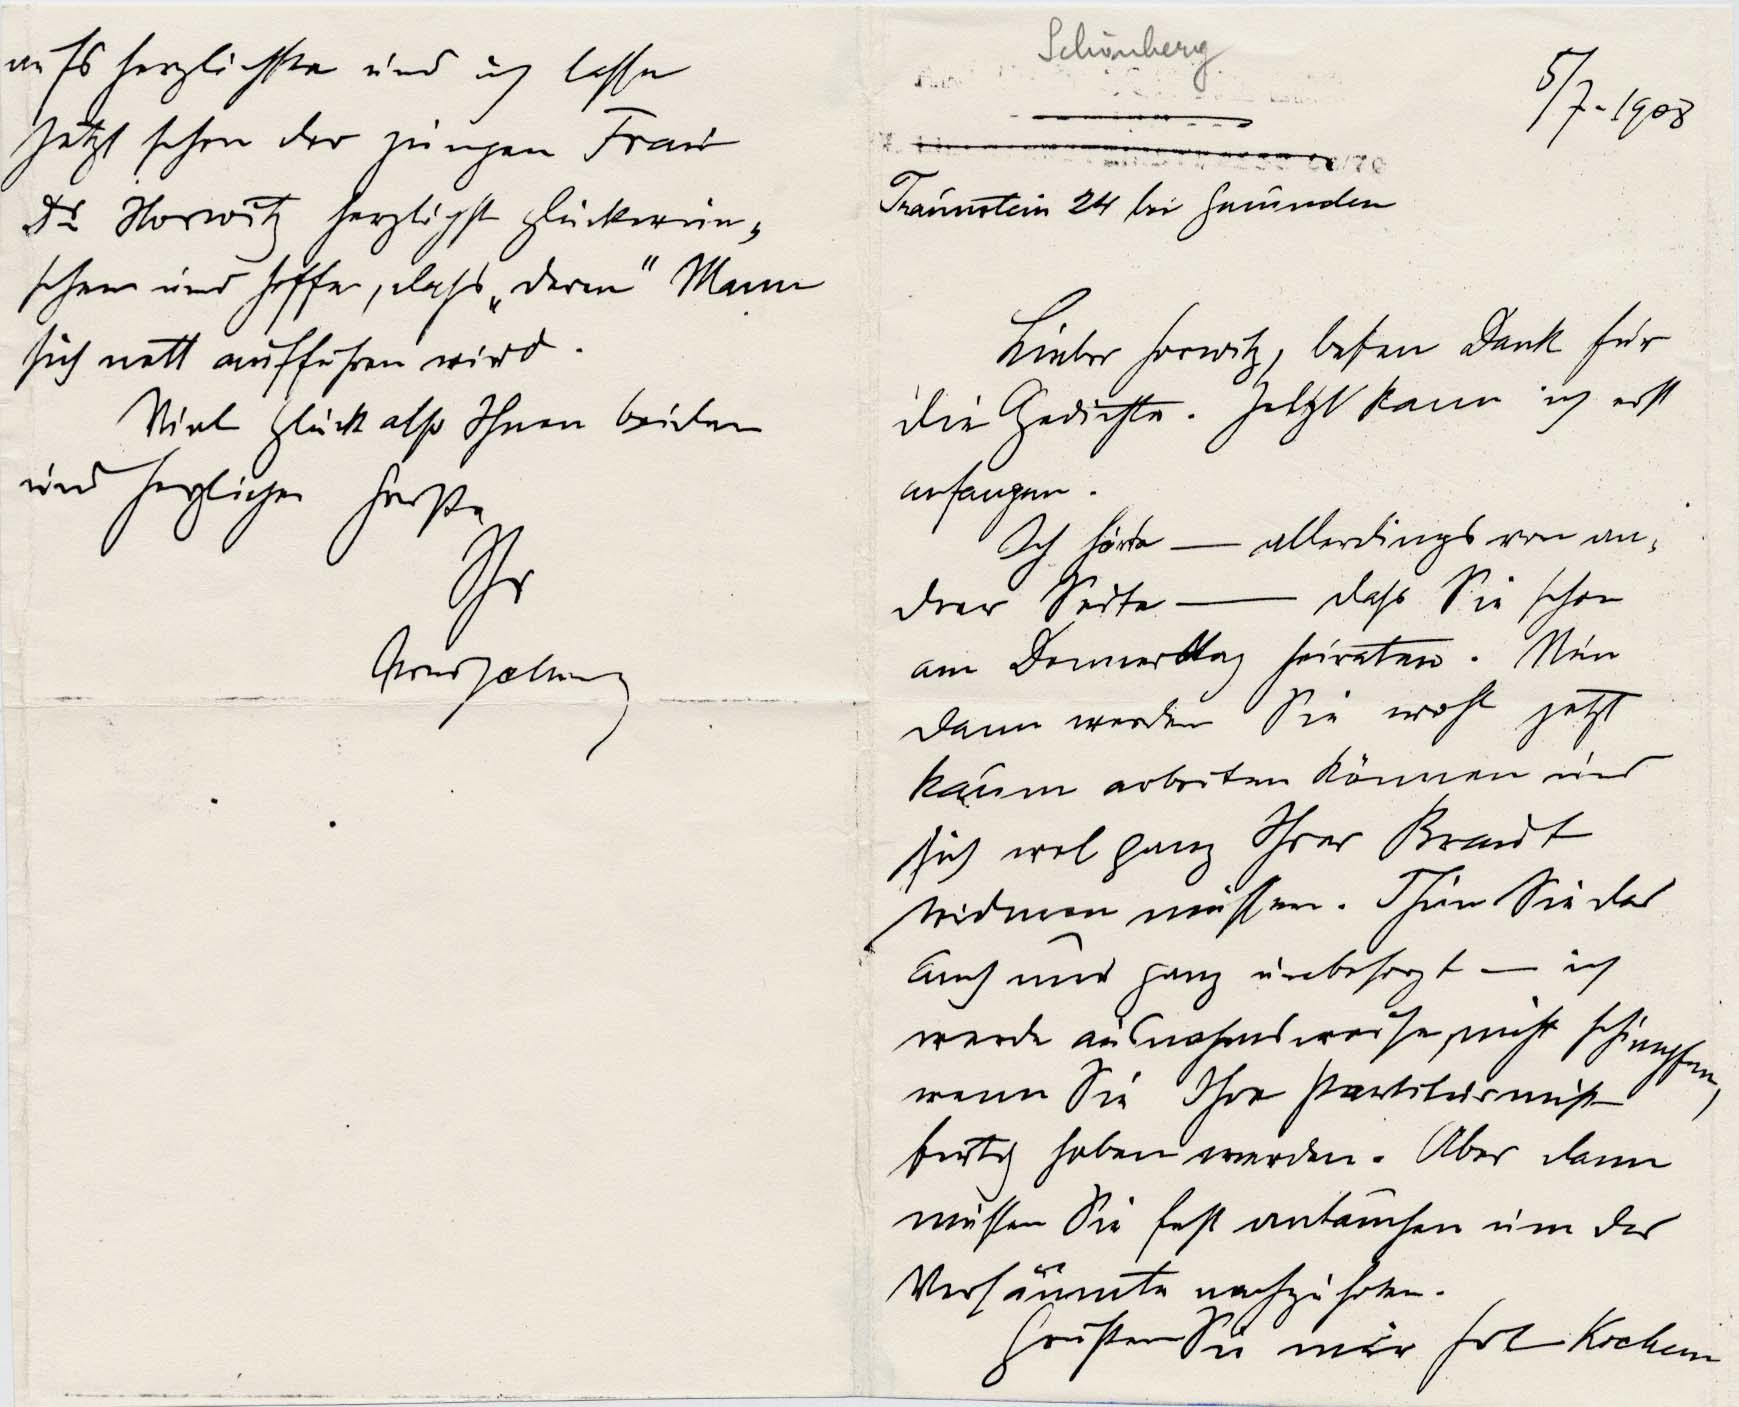 Schönberg
5/7-1908
Traunstein 24 bei Gmunden
Lieber Horwitz, besten Dank für
die Gedichte. Jetzt kann ich erst
anfangen.
Ich hörte — allerdings von an-
drer Seite — dass Sie schon
am Donnerstag heiraten. Nun
dann werden Sie wohl jetzt
kaum arbeiten können und
sich wol ganz Ihrer Braut
widmen müssen. Thun Sie das
auch nur ganz unbesorgt — ich
werde ausnahmsweise nicht schimpfen,
wenn Sie Ihre Partitur nicht
fertig haben werden. Aber dann
müssen Sie fest antauchen um das
Versäumte nachzuholen.
Grüßen Sie mir Frl
aufs herzlichste und ich lasse
jetzt schon der jungen Frau
Dr Horwitz herzlichst glückwün-
schen und hoffe, dass „deren" Mann
sich nett aufführen wird.
Viel Glück also Ihnen beiden
und herzliche Grüße
Ihr
Arnold Schönberg